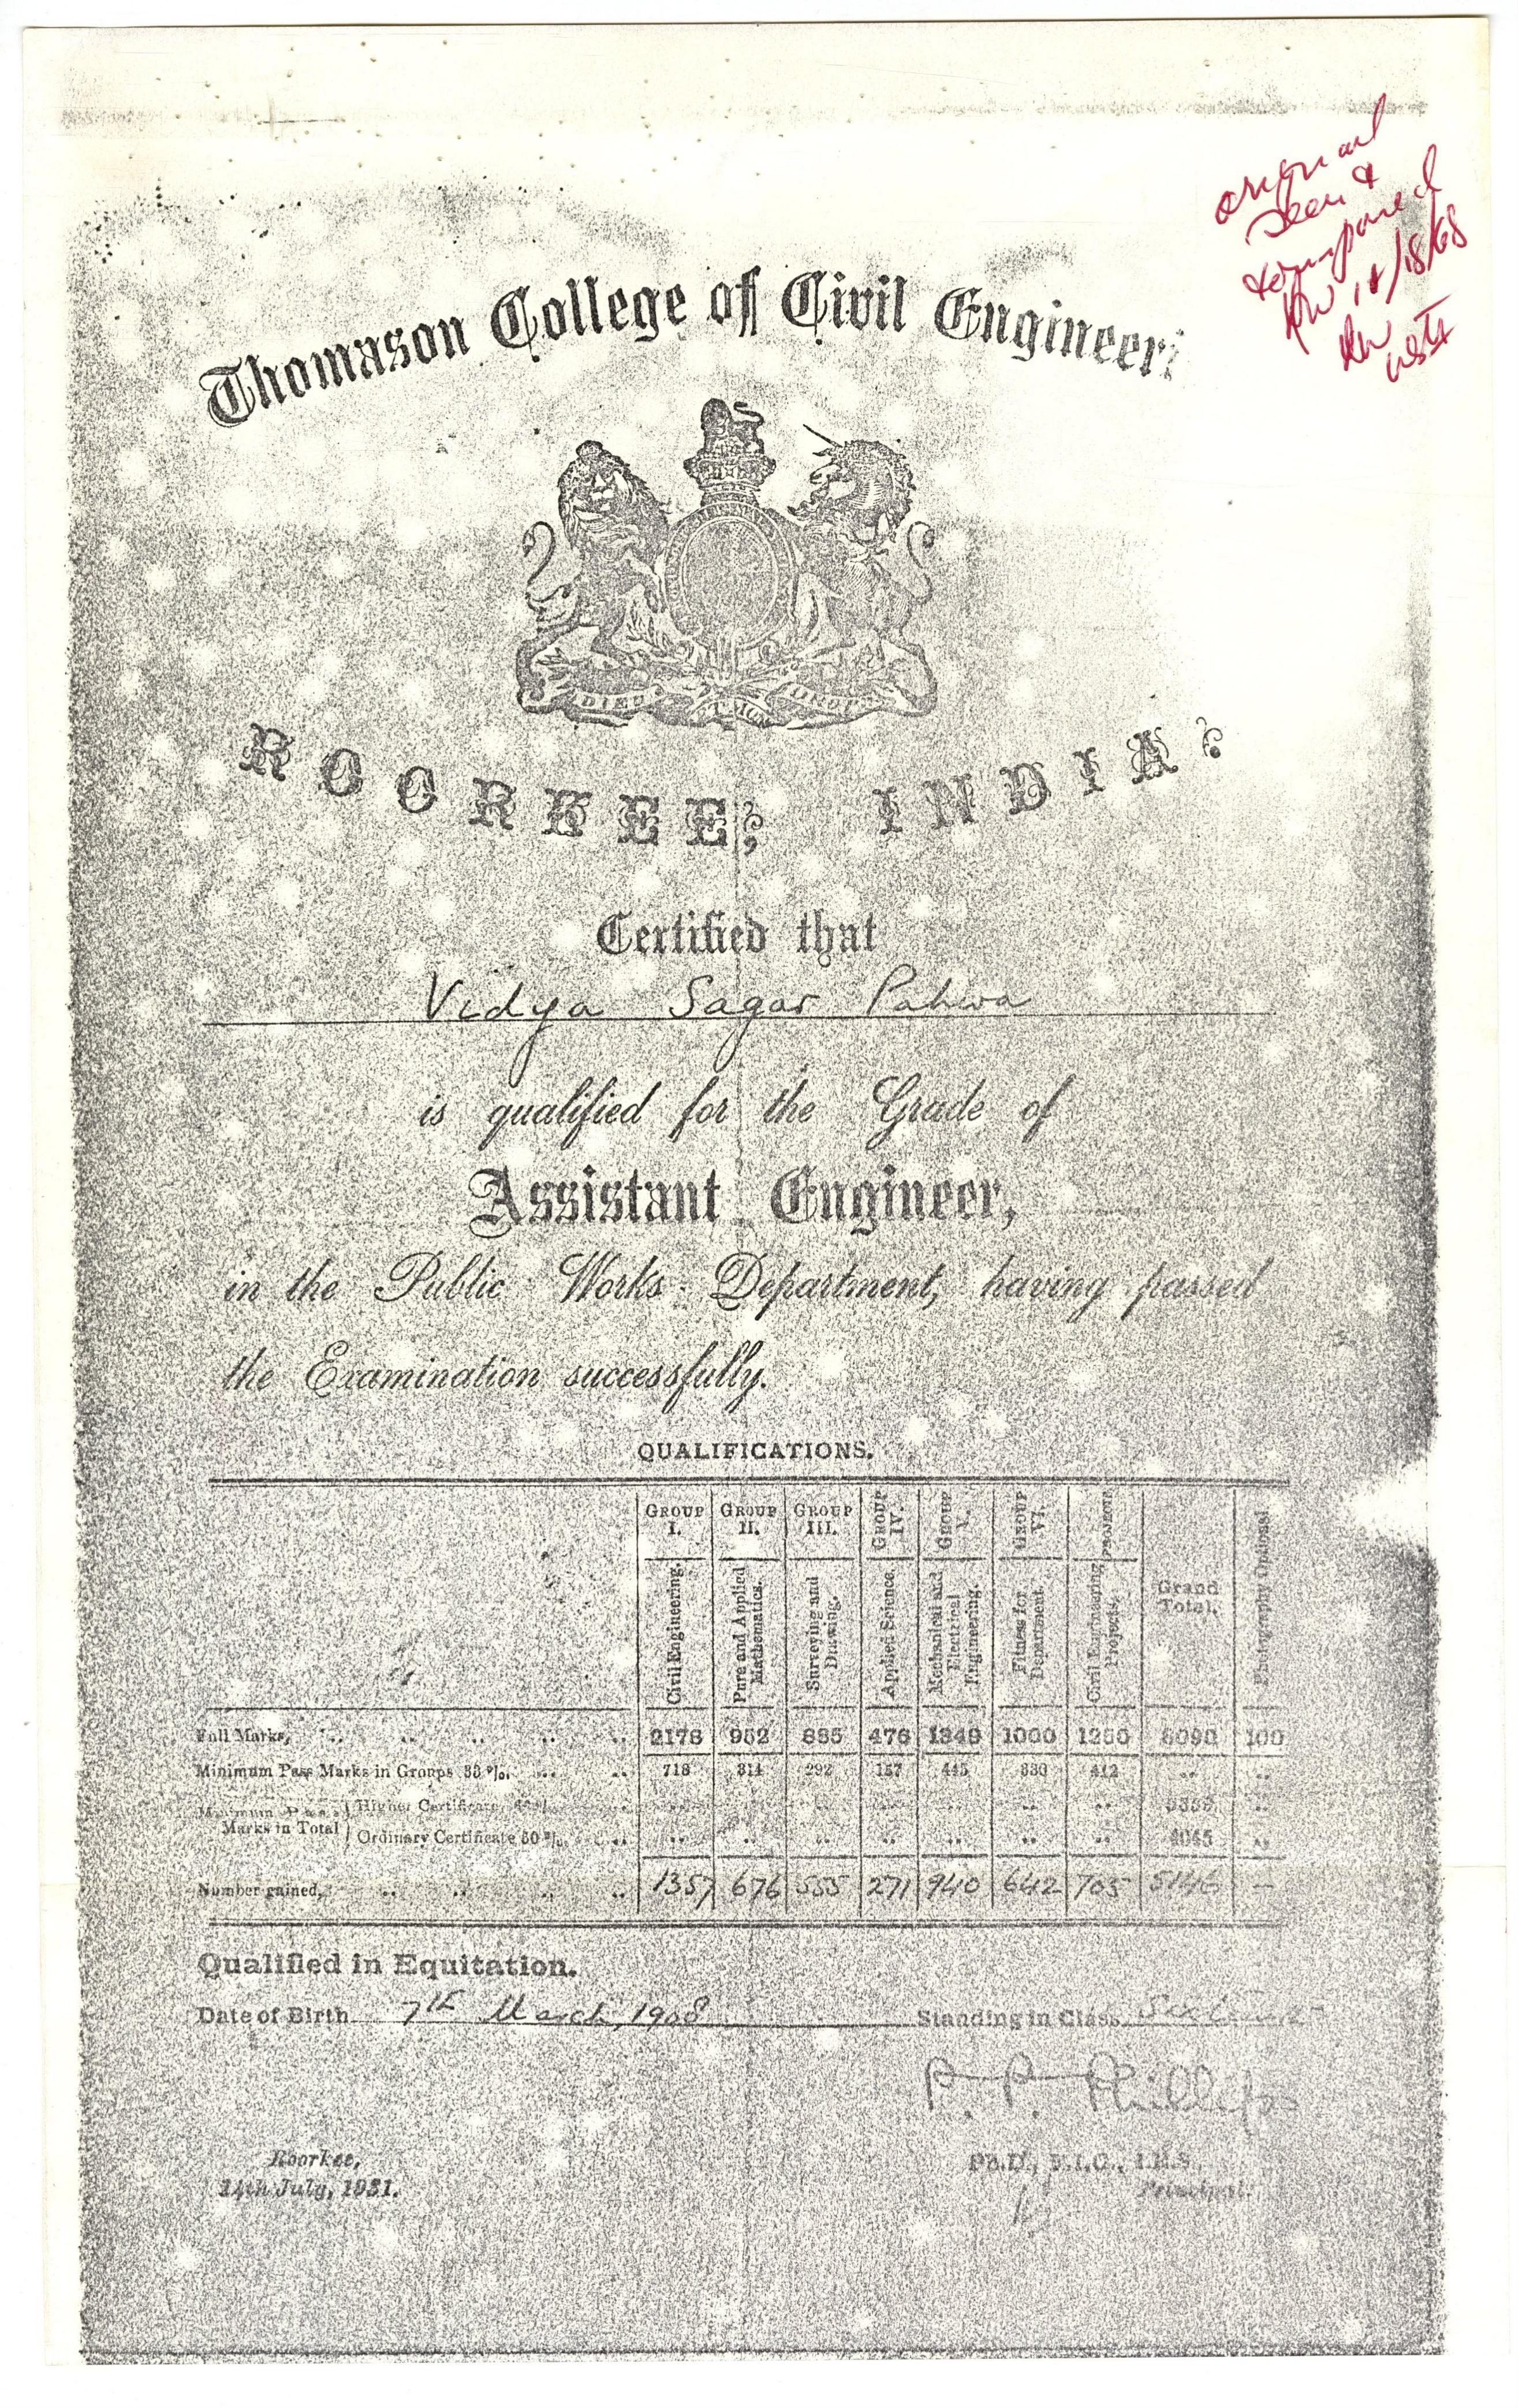 original
seen &
compared
Thomason College of Civil Engineeri
DIEU ET MON DROIT
ROORKEE, INDIA.
Certified that
Vidya Sagar Pahwa
is qualified for the Grade of
Assistant Engineer,
in the Public Works Department, having passed
the Examination successfully.
QUALIFICATIONS.
GROUP I. GROUP II. GROUP III. GROUP IV. GROUP V. GROUP VI. PROJECTS
Civil Engineering. Pure and Applied Mathematics. Surveying and Drawing. Applied Science. Mechanical and Electrical Engineering. Fitness for Department. Civil Engineering Projects. Grand Total. Photography Optional
Full Marks, .. .. .. .. .. 2178 952 885 476 1349 1000 1250 8090 100
Minimum Pass Marks in Groups 33 %. .. .. 718 314 292 157 445 330 412 .. ..
Minimum Pass Marks in Total Higher Certificate .. .. .. .. .. .. .. ..
Ordinary Certificate 50 %. .. .. .. .. .. .. .. .. 4045 ..
Number gained, .. .. .. .. 1357 676 555 271 940 642 705 5146 —
Qualified in Equitation.
Date of Birth 7th March, 1908 Standing in Class
P. P. Phillips
Roorkee, Ph.D., F.I.C., I.E.S.,
14th July, 1931. Principal.